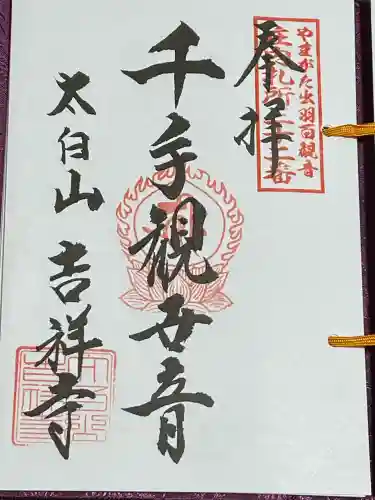 奉拝
やまがた出羽百観音
千手観世音
太白山 吉祥寺